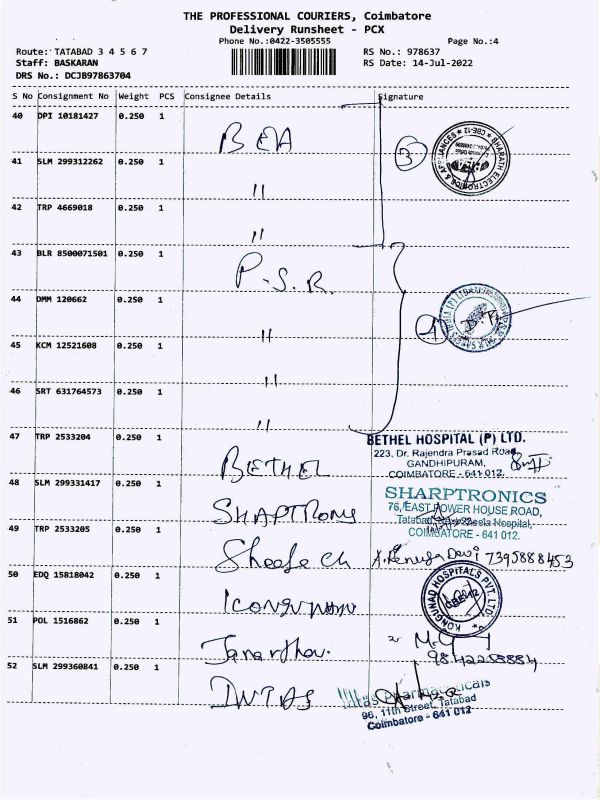 THE PROFESSIONAL COURIERS, Coimbatore
Delivery Runsheet - PCX
Phone No.:0422-3505555
Page No.:4
Route: TATABAD 3 4 5 6 7
RS No.: 978637
Staff: BASKARAN
RS Date: 14-Jul-2022
DRS No.: DCJB97863704
S No Consignment No Weight PCS Consignee Details Signature
40 DPI 10181427 0.250 1
BEA
3
BHARATH ELECTRONICS & APPLIANCES ★ CBE-12 ★
41 SLM 299312262 0.250 1
"
42 TRP 4669018 0.250 1
"
43 BLR 8500071501 0.250 1
P.S.R.
44 DMM 120662 0.250 1
"
4
45 KCM 12521608 0.250 1
"
46 SRT 631764573 0.250 1
"
47 TRP 2533204 0.250 1
BETHEL
BETHEL HOSPITAL (P) LTD.
223, Dr. Rajendra Prasad Road,
GANDHIPURAM,
COIMBATORE - 641 012.
48 SLM 299331417 0.250 1
SHAPTRONS
SHARPTRONICS
76, EAST POWER HOUSE ROAD,
Tatabad, Hospital,
COIMBATORE - 641 012.
49 TRP 2533205 0.250 1
A. Renuga Devi 7395888453
50 EDQ 15818042 0.250 1
KONGUNAD HOSPITALS PVT. LTD.
CBE-12
51 POL 1516862 0.250 1
9842258884
52 SLM 299360841 0.250 1
INTAS
Intas Pharmaceuticals
96, 11th Street, Tatabad
Coimbatore - 641 012